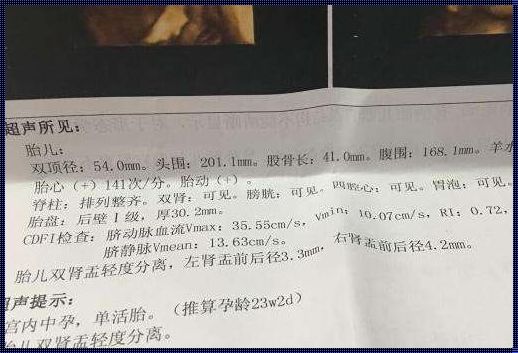 超声所见：
胎儿：
双顶径：54.0mm。头围：201.1mm。股骨长：41.0mm。腹围：168.1mm。羊水
胎心（+）141次/分。胎动（+）。
脊柱：排列整齐。双肾：可见。膀胱：可见。四腔心：可见。胃泡：可见。
胎盘：后壁Ⅰ级，厚30.2mm。
CDFI检查：脐动脉血流Vmax：35.55cm/s，Vmin：10.07cm/s，RI：0.72，
脐静脉Vmean：13.63cm/s。
胎儿双肾盂轻度分离，左肾盂前后径3.3mm，右肾盂前后径4.2mm。
超声提示：
宫内中孕，单活胎。（推算孕龄23w2d）
胎儿双肾盂轻度分离。